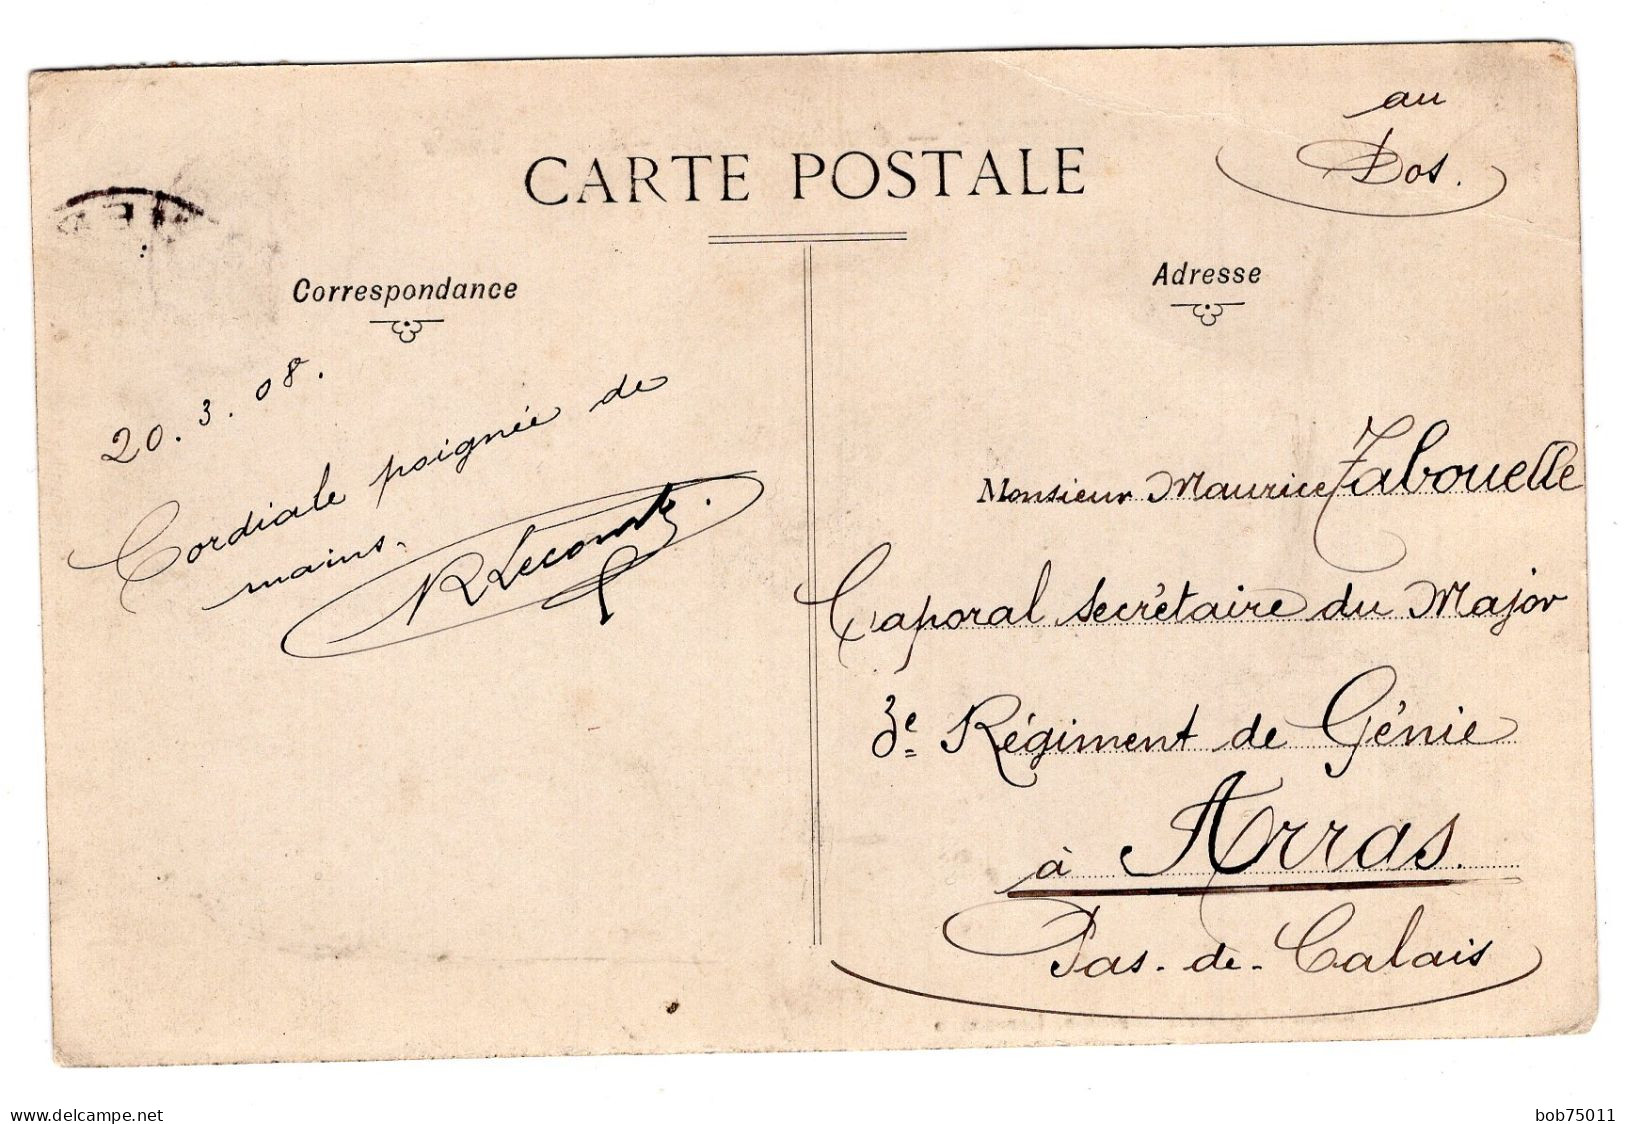 au
Dos.
CARTE POSTALE
Correspondance
20.3.08.
Cordiale poignée de
mains.
R Lecomte
Adresse
Monsieur Maurice Tabouelle
Caporal secrétaire du Major
3e Régiment de Génie
à Arras.
Pas-de-Calais
www.delcampe.net
bob75011